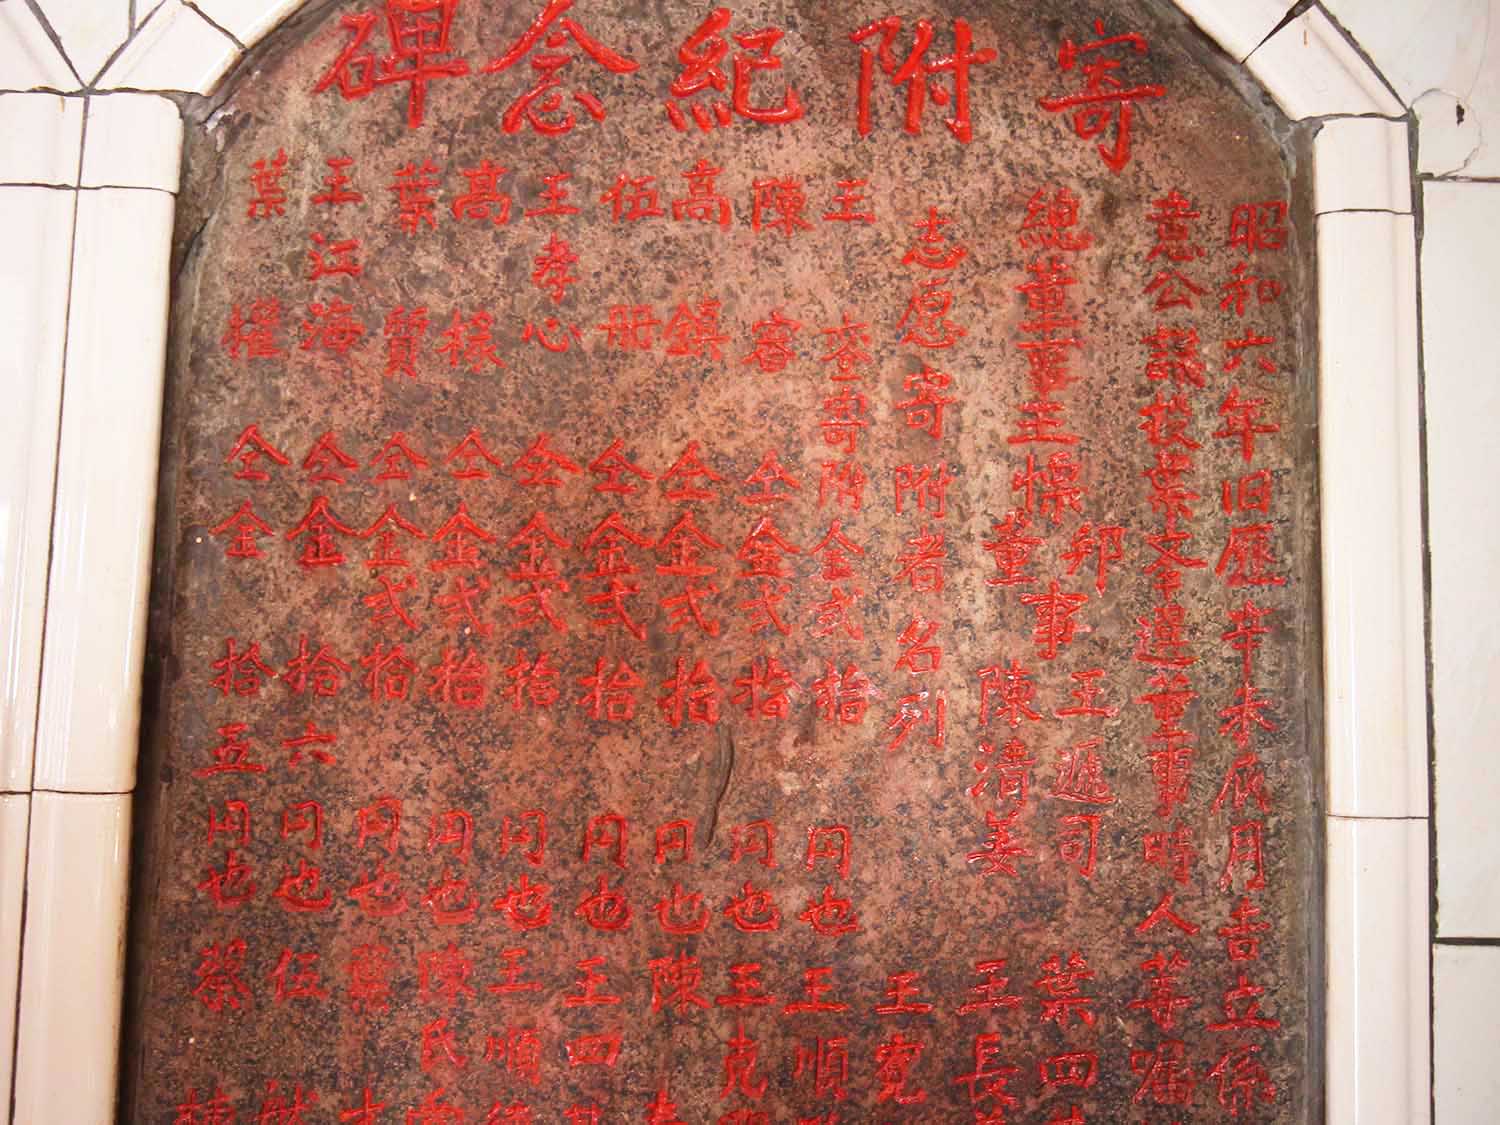 寄附紀念碑
昭和六年旧歷辛未辰月吉立係
意公議投票文令選董事時人等囑
總董事主懔
邦 事 王遞司 葉四
董 陳清姜 王長
志愿寄附者名列 王寬
王容寄附金弍拾円也 王順
陳容仝金弍拾円也 王克
高鎮仝金弍拾円也 陳
伍册仝金弍拾円也 王四
王孝心仝金弍拾円也 王順
高樣仝金弍拾円也 陳氏
葉質仝金弍拾円也 葉
王江海仝金拾六円也 伍
葉權仝金拾五円也 蔡